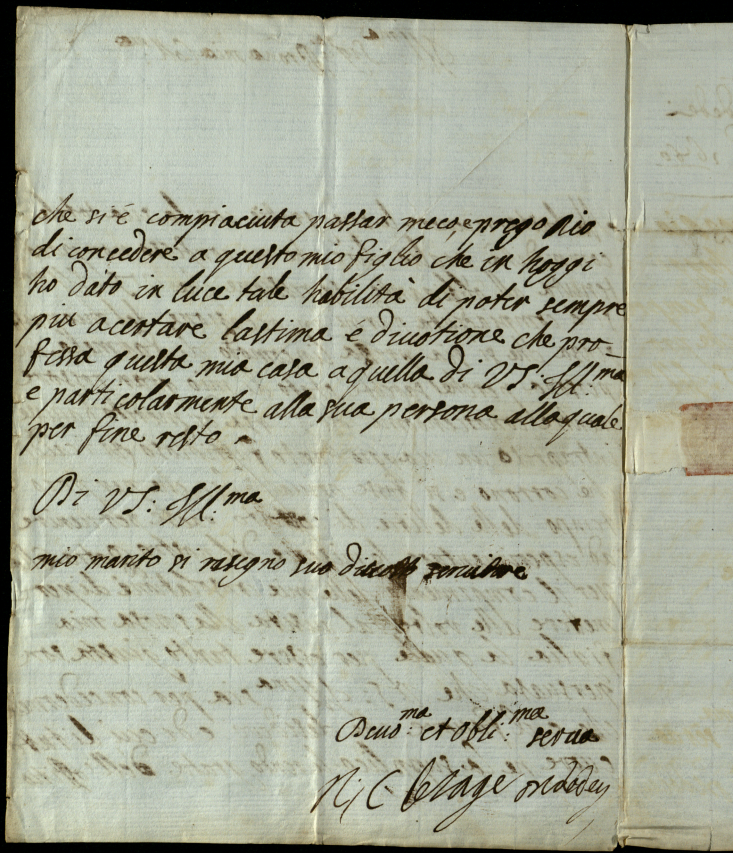 che si é compiaciuta passar meco, e prego Dio
di concedere a questo mio figlio che in hoggi
ho dato in luce tale habilità di poter sempre
piu acertare lastima é divotione che pro-
fessa questa mia casa aquella di VS: Ill:ma
e particolarmente alla sua persona allaquale
per fine resto -
Di VS: Ill:ma
mio marito si rasegno suo divoto servitore
Devo:ma et obli:ma serva